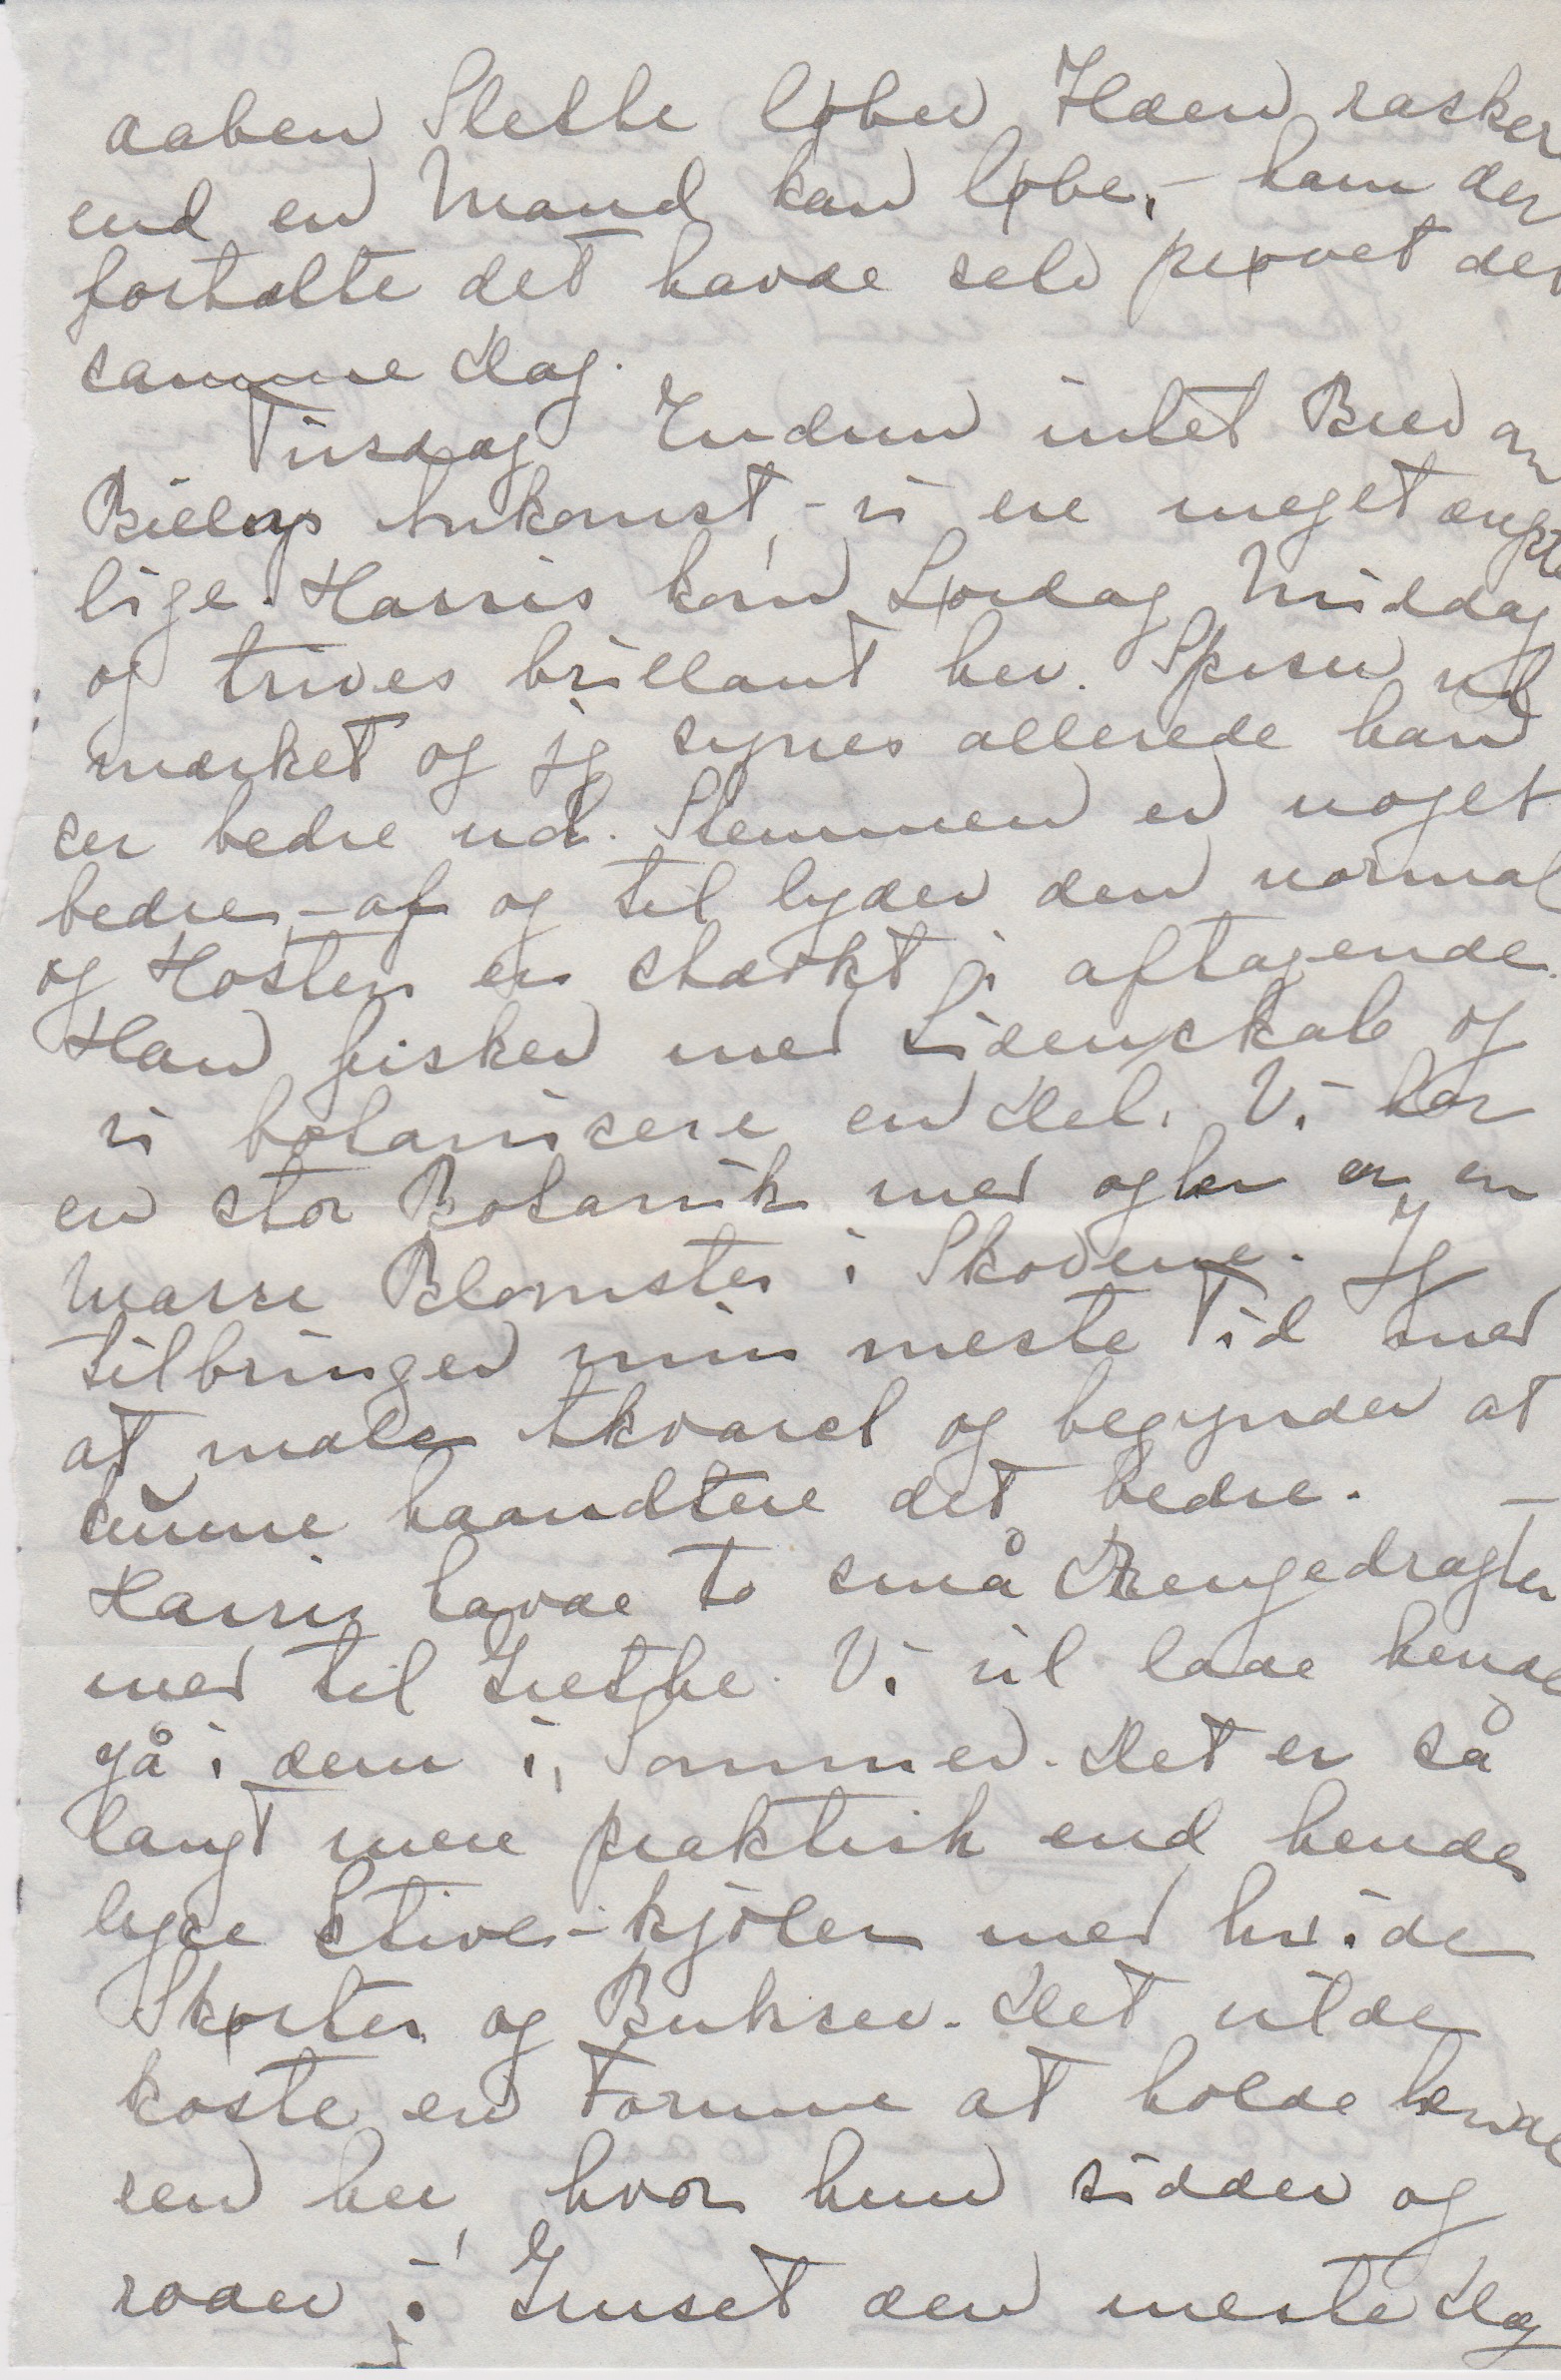 aaben Slette løber Ilden rasker
end en Mand kan løbe, - ham der
fortalte det havde selv prøvet det
samme Dag.
Tirsdag Endnu intet Brev om
Billeys Ankomst, - vi ere meget ængste
lige. Harris kom Lørdag Middag
og trives brillant her. Spiser ud
mærket og jeg synes allerede han
ser bedre ud. Stemmen er noget
bedre, - af og til lyder den normal
og Hosten er stærkt i aftagende.
Han fisker med Lidenskab og
vi botanisere en Del. Vi har
en stor Botanik med og her er en
Masse Blomster i Skovene. Jeg
tilbringer min meste Tid med
at male Akvarel og begynder at
kunne haandtere det bedre. -
Harris havde to små Drengedragter
med til Grethe. Vi vil lade hende
gå i dem i Sommer. Det er så
langt mere praktisk end hendes
lyse Stive-kjöler med hvide
Skørter og Bukser. Det vilde
koste en Formue at holde hende
ren her, hvor hun sidder og
roder i Gruset den meste Dag